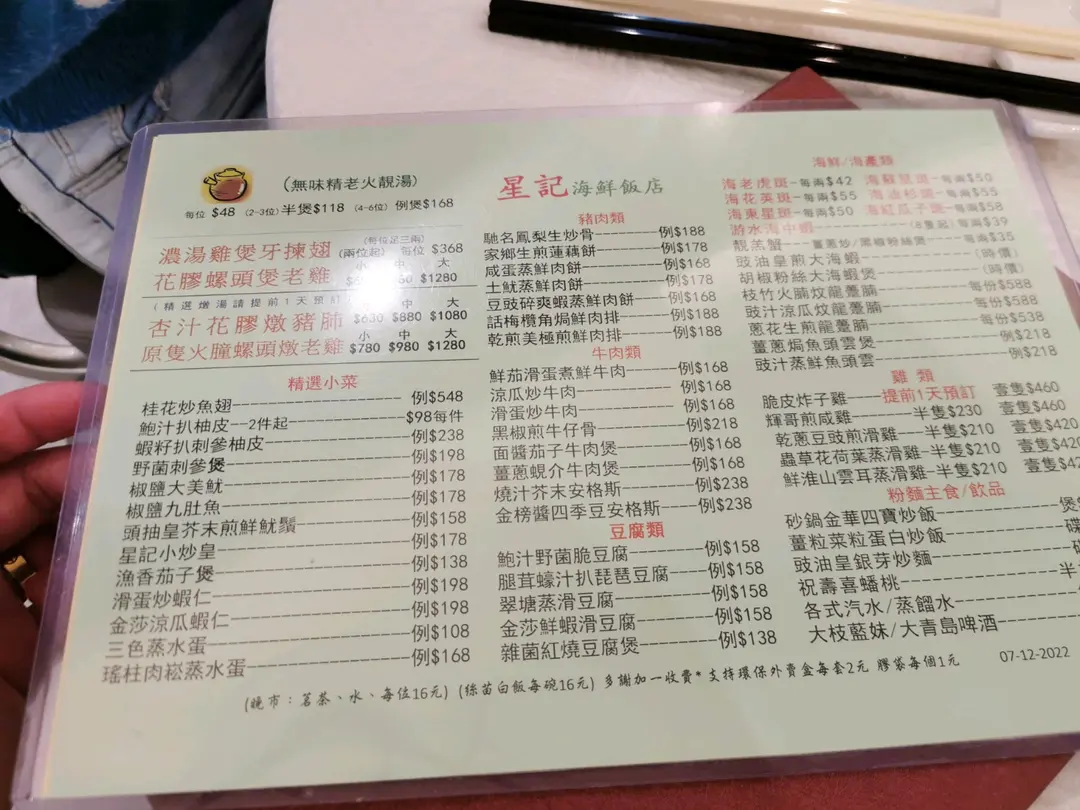 (無味精老火靚湯)
每位 $48 (2-3位) 半煲$118 (4-6位) 例煲$168
濃湯雞煲牙揀翅 (每位足三兩) (兩位起) 每位 $368
小 中 大
花膠螺頭煲老雞 $1280
(精選燉湯請提前1天預訂 中 大
杏汁花膠燉豬肺 $630 $880 $1080
小 中 大
原隻火膧螺頭燉老雞 $780 $980 $1280
精選小菜
桂花炒魚翅 例$548
鮑汁扒柚皮--2件起 $98每件
蝦籽扒刺參柚皮 例$238
野菌刺參煲 例$198
椒鹽大美魷 例$178
椒鹽九肚魚 例$178
頭抽皇芥末煎鮮魷鬚 例$158
星記小炒皇 例$178
漁香茄子煲 例$138
滑蛋炒蝦仁 例$198
金莎涼瓜蝦仁 例$198
三色蒸水蛋 例$108
瑤柱肉崧蒸水蛋 例$168
星記海鮮飯店
豬肉類
馳名鳳梨生炒骨 例$188
家鄉生煎蓮藕餅 例$178
咸蛋蒸鮮肉餅 例$168
土魷蒸鮮肉餅 例$178
豆豉碎爽蝦蒸鮮肉餅 例$168
話梅欖角焗鮮肉排 例$188
乾煎美極煎鮮肉排 例$188
牛肉類
鮮茄滑蛋煮鮮牛肉 例$168
涼瓜炒牛肉 例$168
滑蛋炒牛肉 例$168
黑椒煎牛仔骨 例$218
面醬茄子牛肉煲 例$168
薑蔥蜆介牛肉煲 例$168
燒汁芥末安格斯 例$238
金榜醬四季豆安格斯 例$238
豆腐類
鮑汁野菌脆豆腐 例$158
腿茸蠔汁扒琵琶豆腐 例$158
翠塘蒸滑豆腐 例$158
金莎鮮蝦滑豆腐 例$158
雜菌紅燒豆腐煲 例$138
海鮮/海產類
海老虎斑-每兩$42 海鼠斑-每兩$50
海花英斑-每兩$55 海杉斑-每兩$55
海東星斑-每兩$50 海紅瓜子斑-每兩$58
游水海中蝦 (8隻起)每兩$39
靚羔蟹 薑蔥炒/黑椒粉絲煲 每兩$35
豉油皇煎大海蝦 (時價)
胡椒粉絲大海蝦煲 (時價)
枝竹火腩炆龍躉腩 每份$588
豉汁涼瓜炆龍躉腩 每份$588
蔥花生煎龍躉腩 每份$538
薑蔥焗魚頭雲煲 例$218
豉汁蒸鮮魚頭雲 例$218
雞 類
脆皮炸子雞 提前1天預訂 壹隻$460
輝哥煎咸雞 半隻$230 壹隻$460
乾蔥豆豉煎滑雞 半隻$210 壹隻$420
蟲草花荷葉蒸滑雞-半隻$210 壹隻$420
鮮淮山雲耳蒸滑雞-半隻$210 壹隻$42
粉麵主食/飲品
砂鍋金華四寶炒飯 煲
薑粒菜粒蛋白炒飯 碟
豉油皇銀芽炒麵
祝壽喜蟠桃 半
各式汽水/蒸餾水
大枝藍妹/大青島啤酒
(晚市：茗茶、水、每位16元) (絲苗白飯每碗16元) 多謝加一收費* 支持環保外賣盒每套2元 膠袋每個1元 07-12-2022